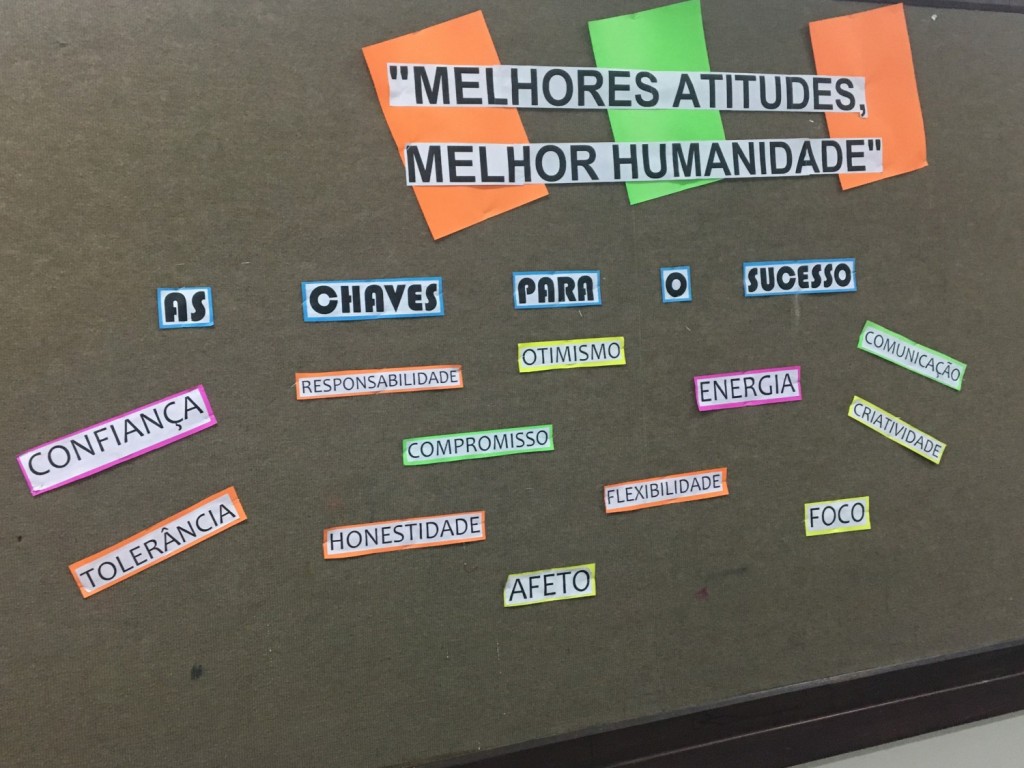 "MELHORES ATITUDES,
MELHOR HUMANIDADE"
AS CHAVES PARA O SUCESSO
OTIMISMO
COMUNICAÇÃO
RESPONSABILIDADE
ENERGIA
CONFIANÇA
CRIATIVIDADE
COMPROMISSO
FLEXIBILIDADE
FOCO
TOLERÂNCIA
HONESTIDADE
AFETO